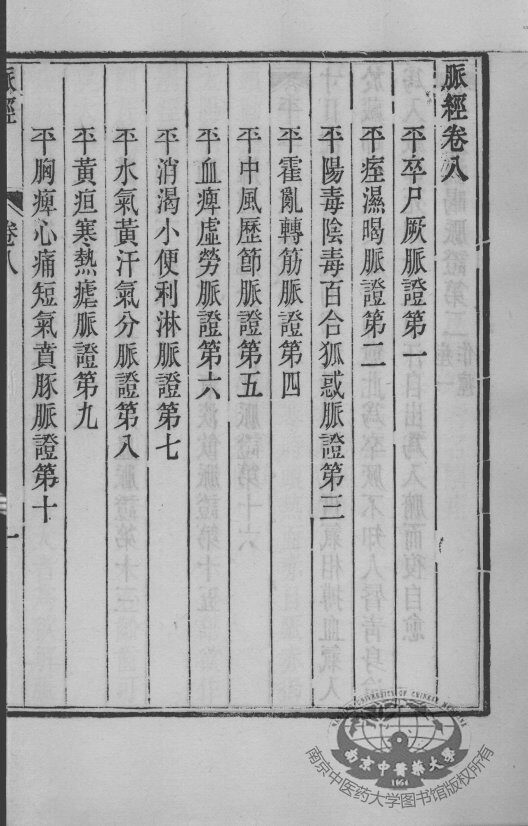 脈經卷八
平卒尸厥脈證第一
平痓濕暍脈證第二
平陽毒陰毒百合狐惑脈證第三
平霍亂轉筋脈證第四
平中風歷節脈證第五
平血痺虛勞脈證第六
平消渴小便利淋脈證第七
平水氣黃汗氣分脈證第八
平黃疸寒熱瘧脈證第九
平胸痺心痛短氣賁豚脈證第十
脈經
卷八
一
南京中醫藥大學
1954
南京中医药大学图书馆版权所有